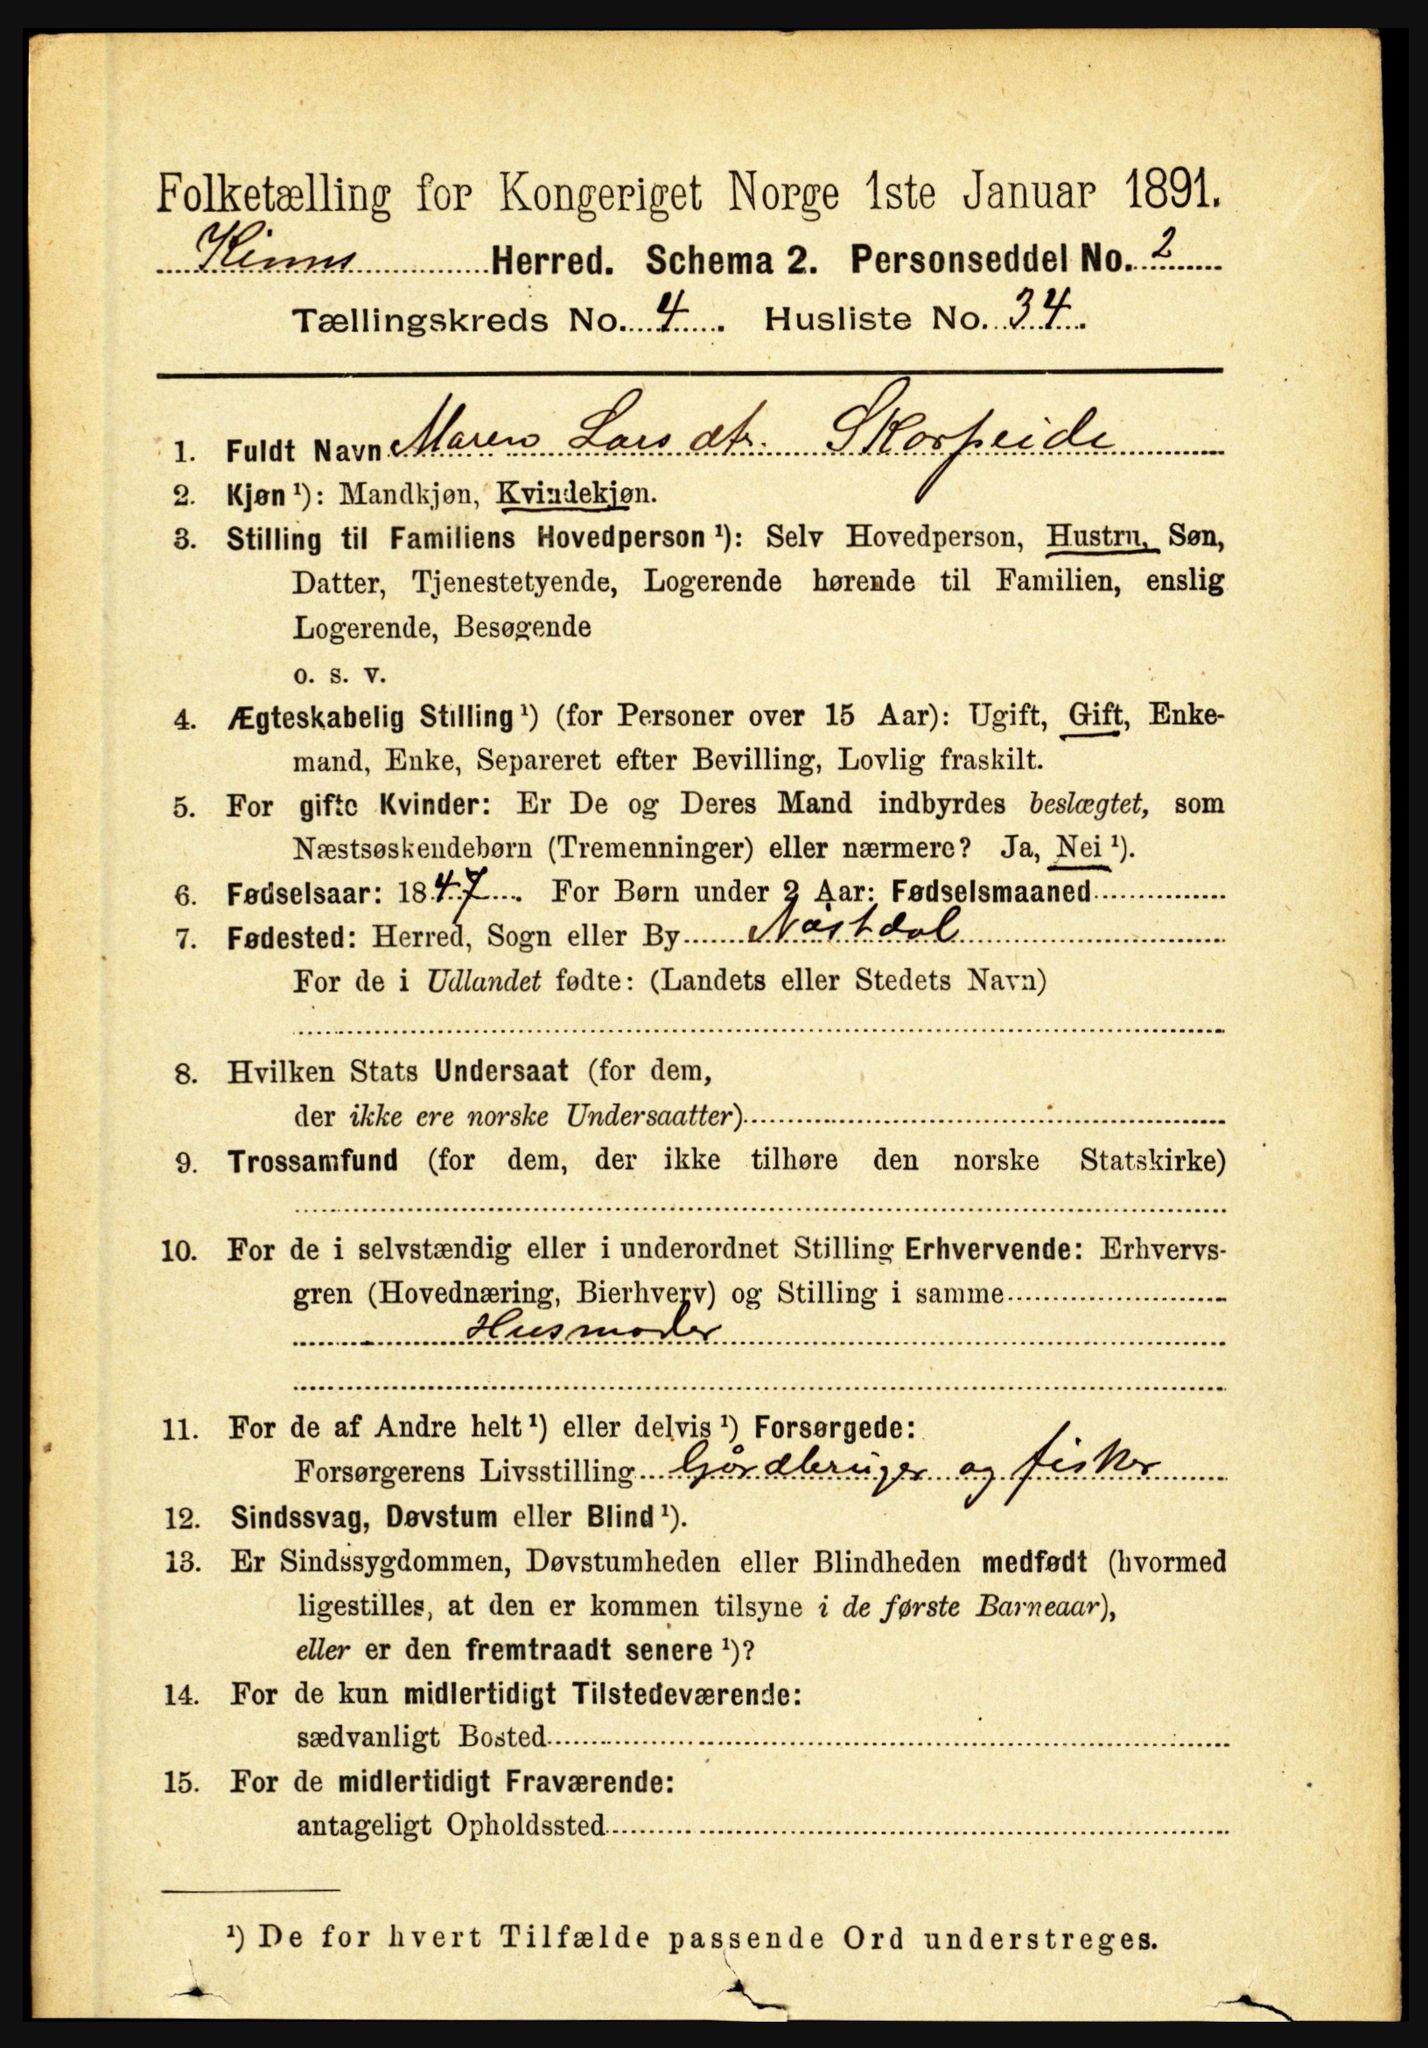 Folketælling for Kongeriget Norge 1ste Januar 1891.
Kinns Herred. Schema 2. Personseddel No. 2
Tællingskreds No. 4. Husliste No. 34.
1. Fuldt Navn Maren Larsdtr. Skorpeide
2. Kjøn ¹): Mandkjøn, Kvindekjøn.
3. Stilling til Familiens Hovedperson ¹): Selv Hovedperson, Hustru, Søn,
Datter, Tjenestetyende, Logerende hørende til Familien, enslig
Logerende, Besøgende
o. s. v.
4. Ægteskabelig Stilling ¹) (for Personer over 15 Aar): Ugift, Gift, Enke-
mand, Enke, Separeret efter Bevilling, Lovlig fraskilt.
5. For gifte Kvinder: Er De og Deres Mand indbyrdes beslægtet, som
Næstsøskendebørn (Tremenninger) eller nærmere? Ja, Nei ¹).
6. Fødselsaar: 1847. For Børn under 2 Aar: Fødselsmaaned
7. Fødested: Herred, Sogn eller By Nøstdal
For de i Udlandet fødte: (Landets eller Stedets Navn)
8. Hvilken Stats Undersaat (for dem,
der ikke ere norske Undersaatter)
9. Trossamfund (for dem, der ikke tilhøre den norske Statskirke)
10. For de i selvstændig eller i underordnet Stilling Erhvervende: Erhvervs-
gren (Hovednæring, Bierhverv) og Stilling i samme
Husmoder
11. For de af Andre helt ¹) eller delvis ¹) Forsørgede:
Forsørgerens Livsstilling Gårdbruger og fisker
12. Sindssvag, Døvstum eller Blind ¹).
13. Er Sindssygdommen, Døvstumheden eller Blindheden medfødt (hvormed
ligestilles, at den er kommen tilsyne i de første Barneaar),
eller er den fremtraadt senere ¹)?
14. For de kun midlertidigt Tilstedeværende:
sædvanligt Bosted
15. For de midlertidigt Fraværende:
antageligt Opholdssted
¹) De for hvert Tilfælde passende Ord understreges.